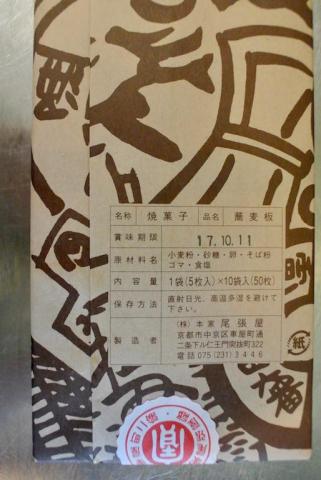 名称 焼菓子 品名 蕎麦板
賞味期限 17.10.11
原材料名 小麦粉・砂糖・卵・そば粉
ゴマ・食塩
内容量 1袋(5枚入)×10袋入(50枚)
保存方法 直射日光、高温多湿を避けて
下さい。
製造者 (株)本家 尾張屋
京都市中京区車屋町通
二条下ル仁王門突抜町322
電話 075(231)3446
紙